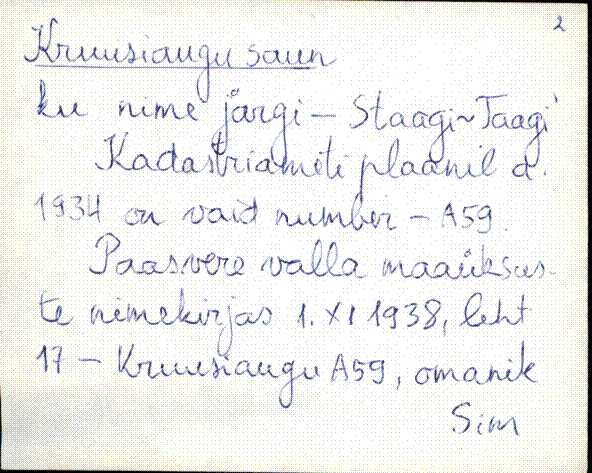 2
Kruusiaugu saun
ku nime järgi – Staagi ~ Taagi'
Kadastriameti plaanil a.
1934 on vaid number – A59.
Paasvere valla maaüksus-
te nimekirjas 1. XI 1938, leht
17 – Kruusiaugu A59, omanik
Sim